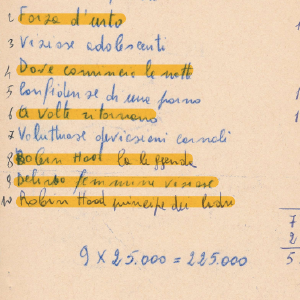 2 Forza d'urto
3 Viziose adolescenti
4 Dove comincia la notte
5 Confidenze di una porno
6 A volte ritornano
7 Voluttuose deviazioni carnali
8 Robin Hood la leggenda
9 Delirio femmine viziose
10 Robin Hood principe dei ladri
7
2
5
9 X 25.000 = 225.000